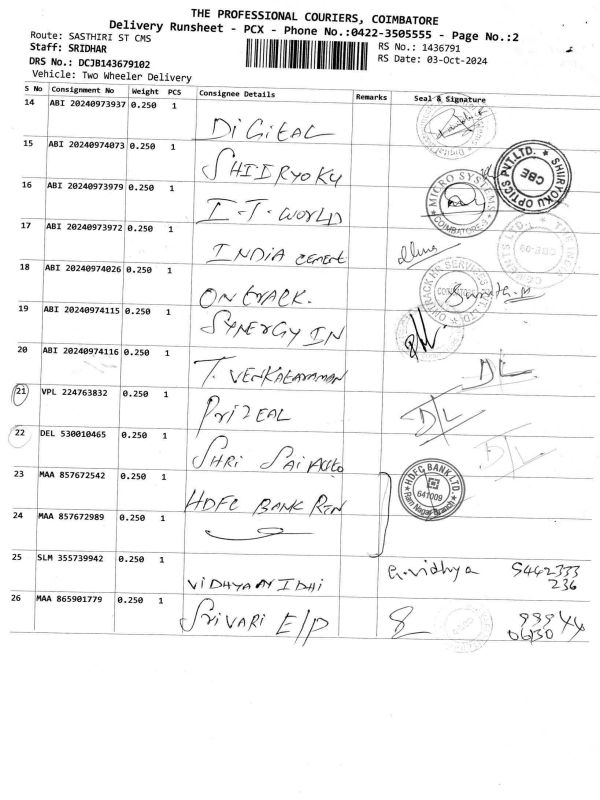 THE PROFESSIONAL COURIERS, COIMBATORE
Delivery Runsheet - PCX - Phone No.:0422-3505555 - Page No.:2
Route: SASTHIRI ST CMS
RS No.: 1436791
Staff: SRIDHAR
RS Date: 03-Oct-2024
DRS No.: DCJB143679102
Vehicle: Two Wheeler Delivery
S No Consignment No Weight PCS Consignee Details Remarks Seal & Signature
14 ABI 20240973937 0.250 1 DIGITAL
15 ABI 20240974073 0.250 1 SHIIRYOKU
SHIIRYOKU OPTICS PVT.LTD. CBE
16 ABI 20240973979 0.250 1 I-T-WORLD
MICRO SYSTEMS COIMBATORE
17 ABI 20240973972 0.250 1 INDIA cement
18 ABI 20240974026 0.250 1 ONTRACK.
ONTRACK HR SERVICES
19 ABI 20240974115 0.250 1 SYNERGY IN
20 ABI 20240974116 0.250 1 T. VENKATARAMAN D/L
21 VPL 224763832 0.250 1 PRIZEAL D/L
22 DEL 530010465 0.250 1 SHRI SAI AUTO D/L
23 MAA 857672542 0.250 1 HDFC BANK RTN
HDFC BANK LTD 641009 Ram Nagar Branch
24 MAA 857672989 0.250 1
25 SLM 355739942 0.250 1 VIDHYA NIDHI G.vidhya
236
26 MAA 865901779 0.250 1 SRIVARI E/P